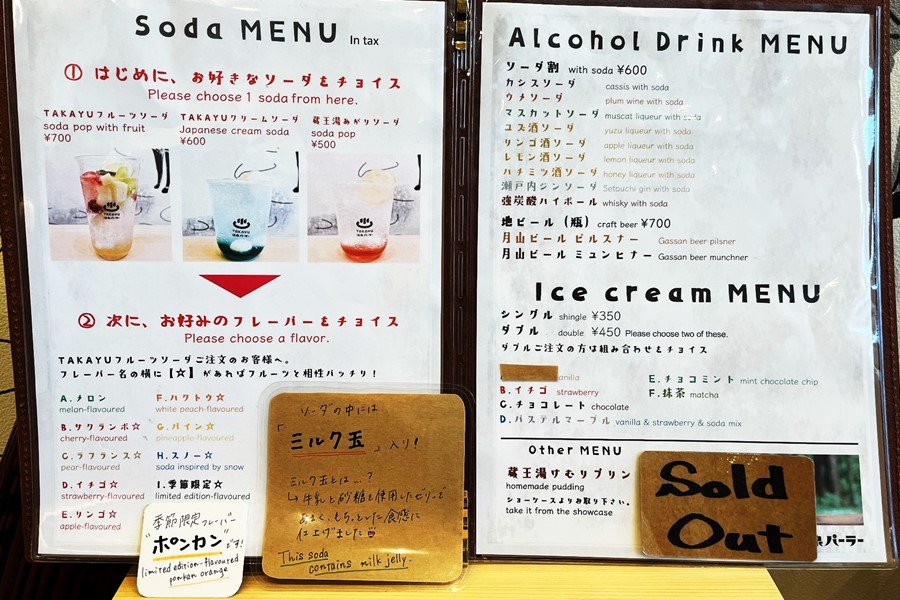 Soda MENU In tax
① はじめに、お好きなソーダをチョイス
Please choose 1 soda from here.
TAKAYUフルーツソーダ
soda pop with fruit
¥700
TAKAYUクリームソーダ
Japanese cream soda
¥600
蔵王湯あがりソーダ
soda pop
¥500
TAKAYU
TAKAYU
TAKAYU
② 次に、お好みのフレーバーをチョイス
Please choose a flavor.
TAKAYUフルーツソーダご注文のお客様へ。
フレーバー名の横に【☆】があればフルーツと相性バッチリ!
A.メロン
melon-flavoured
B.サクランボ☆
cherry-flavoured
C.ラフランス☆
pear-flavoured
D.イチゴ☆
strawberry-flavoured
E.リンゴ☆
apple-flavoured
F.ハクトウ☆
white peach-flavoured
G.パイン☆
pineapple-flavoured
H.スノー☆
soda inspired by snow
I.季節限定☆
limited edition-flavoured
季節限定フレーバー
"ポンカン"です!
limited edition-flavoured
ponkan orange.
ソーダの中には
「ミルク玉」入り!
ミルク玉とは…?
↳牛乳と砂糖を使用したゼリーで
あまく、もちっとした食感に
仕上げました
This soda
contains milk jelly.
Alcohol Drink MENU
ソーダ割 with soda ¥600
カシスソーダ cassis with soda
ウメソーダ plum wine with soda
マスカットソーダ muscat liqueur with soda
ユズ酒ソーダ yuzu liqueur with soda
リンゴ酒ソーダ apple liqueur with soda
レモン酒ソーダ lemon liqueur with soda
ハチミツ酒ソーダ honey liqueur with soda
瀬戸内ジンソーダ Setouchi gin with soda
強炭酸ハイボール whisky with soda
地ビール(瓶) craft beer ¥700
月山ビール ピルスナー Gassan beer pilsner
月山ビール ミュンヒナー Gassan beer munchner
Ice cream MENU
シングル shingle ¥350
ダブル double ¥450 Please choose two of these.
ダブルご注文の方は組み合わせをチョイス
anilla
B.イチゴ strawberry
C.チョコレート chocolate
D.パステルマーブル vanilla & strawberry & soda mix
E.チョコミント mint chocolate chip
F.抹茶 matcha
Other MENU
蔵王湯けむりプリン
homemade pudding
ショーケースよりお取り下さい。
take it from the showcase
Sold
Out
パーラー